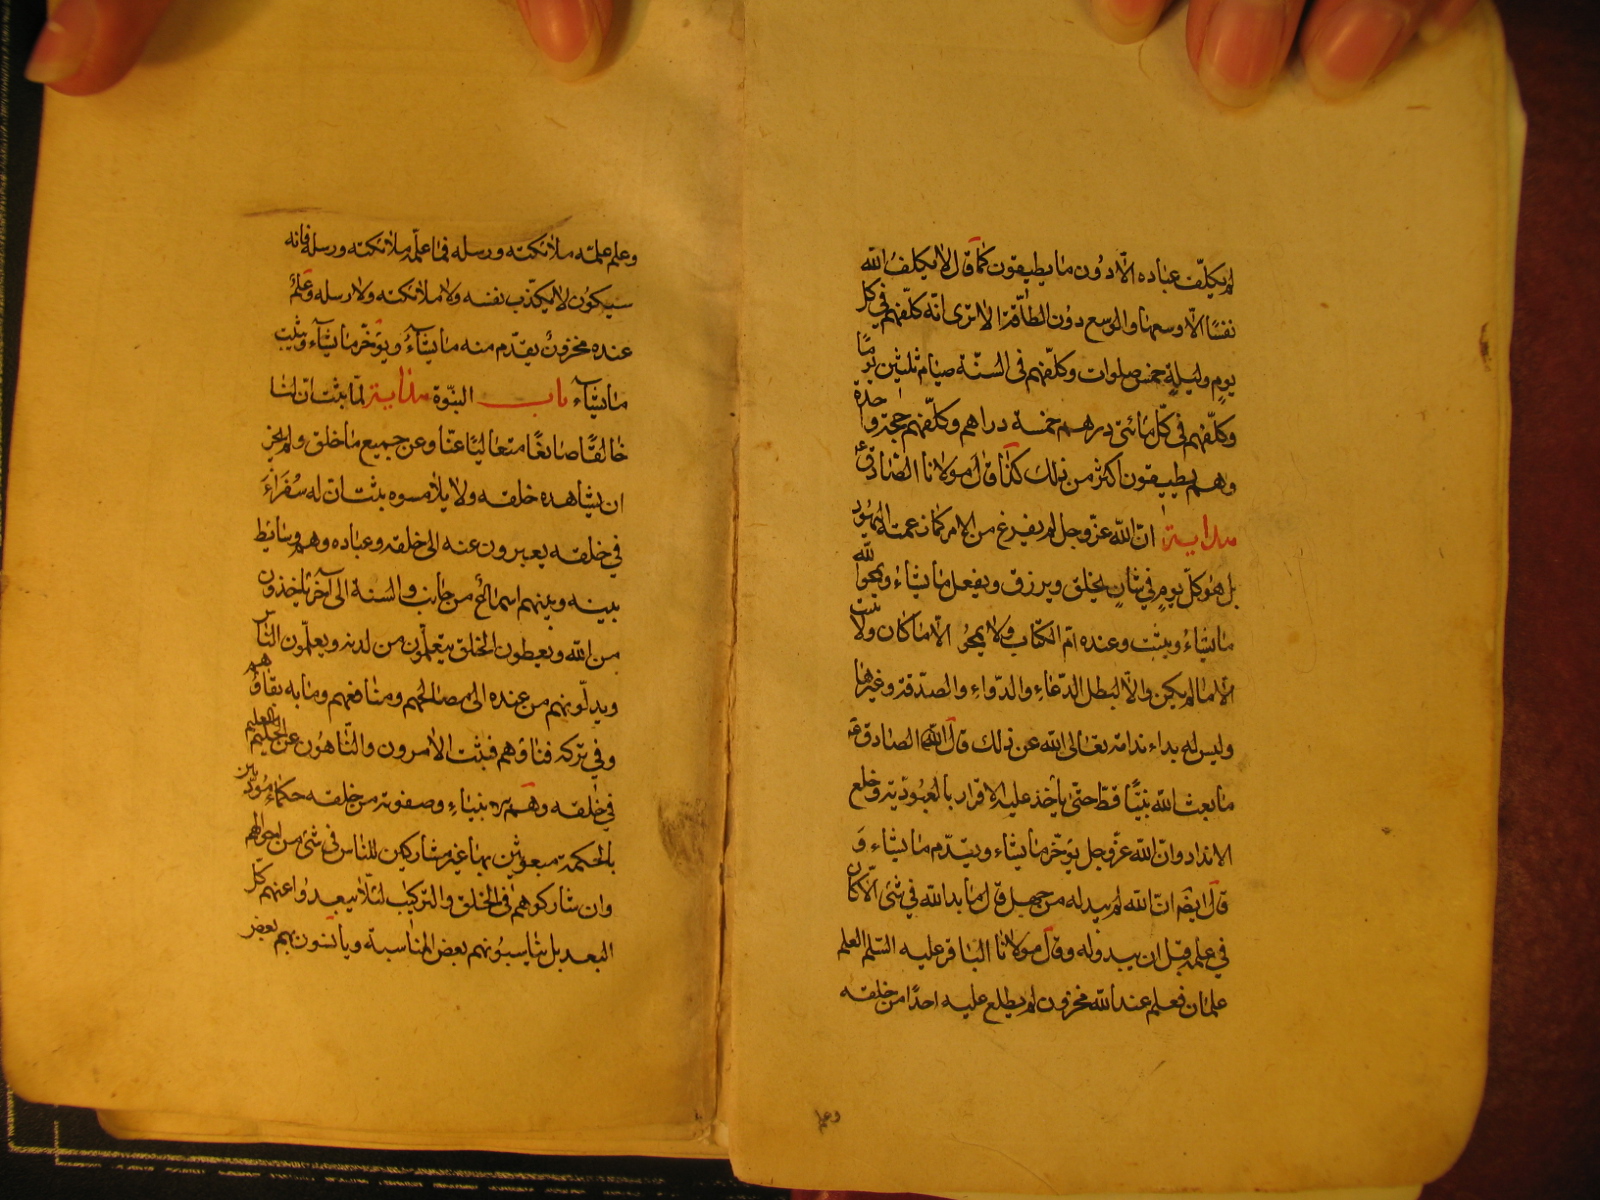 لم يكلّف عباده الّا دون ما يطيقون كما قال لا يكلف الله
نفسًا الّا وسعها والوسع دون الطاقة الا ترى انّه كلّفهم في كل
يومٍ وليلةٍ خمس صلوات وكلّفهم فى السنّة صيام ثلثين يومًا
وكلّفهم في كلّ مأتى درهم خمسة دراهم وكلّفهم حجة واحدة
وهم يطيقون اكثر من ذلك كذا قال مولانا الصّادق ع
هداية انّ الله عزّ وجل لم يفرغ من الامر كما زعمته اليهود
بل هو كلّ يومٍ في شانٍ يخلق ويرزق ويفعل ما يشاء ويمحو الله
ما يشاء ويثبت وعنده امّ الكتاب ولا يمحو الّا ما كان ولا يثبت
الّا ما لم يكن والّا لبطل الدّعاء والدّواء والصّدقة وغيرها
وليس له بداء ندامة تعالى الله عن ذلك قال الصّادق ع
ما بعث الله نبيًّا قطّ حتّى يأخذ عليه الاقرار بالعبوديّة وخلع
الانداد وانّ الله عزّ وجل يؤخّر ما يشاء ويقدّم ما يشاء و
قال ايضًا انّ الله لم يبد له من جهل قال ما بدا لله في شئ الّا كان
في علمه قبل ان يبدو له وقال مولانا الباقر عليه السّلم العلم
علمان فعلم عند الله مخزون لم يطلع عليه احدًا من خلقه
وعلم
وعلم علمه ملائكته ورسله فما علّمه ملائكته ورسله فانه
سيكون لا يكذّب نفسه ولا ملائكته ولا رسله وعلمٌ
عنده مخزونٌ يقدّم منه ما يشآء ويؤخّر ما يشآء ويثبت
ما يشآء باب النبّوة هداية لمّا ثبت ان لنا
خالقًا صانعًا متعاليًا عنّا وعن جميع ما خلق ولم يجز
ان يشاهده خلقه ولا يلامسوه ثبت ان له سُفَراءَ
في خلقه يعبرون عنه الى خلقه وعباده وهم وسائط
بينه وبينهم من جانب والسنة الى آخر يأخذون
من الله ويعطون الخلق يتعلّمون من لدنه ويعلّمون النّاس
ويدلّونهم من عنده الى مصالحهم ومنافعهم وما به بقاؤهم
وفي تركه فناؤهم فثبت الآمرون والنّاهون عن الحكيم العليم
في خلقه وهم الانبياء وصفوته من خلقه حكماء مؤدّبين
بالحكمة مبعوثين بها غير مشاركين للنّاس فى شئ من احوالهم
وان شاركوهم في الخلق والتركيب لئلّا يبعدوا عنهم كلّ
البعد بل يناسبونهم بعض المناسبة ويأنسون بهم بعض